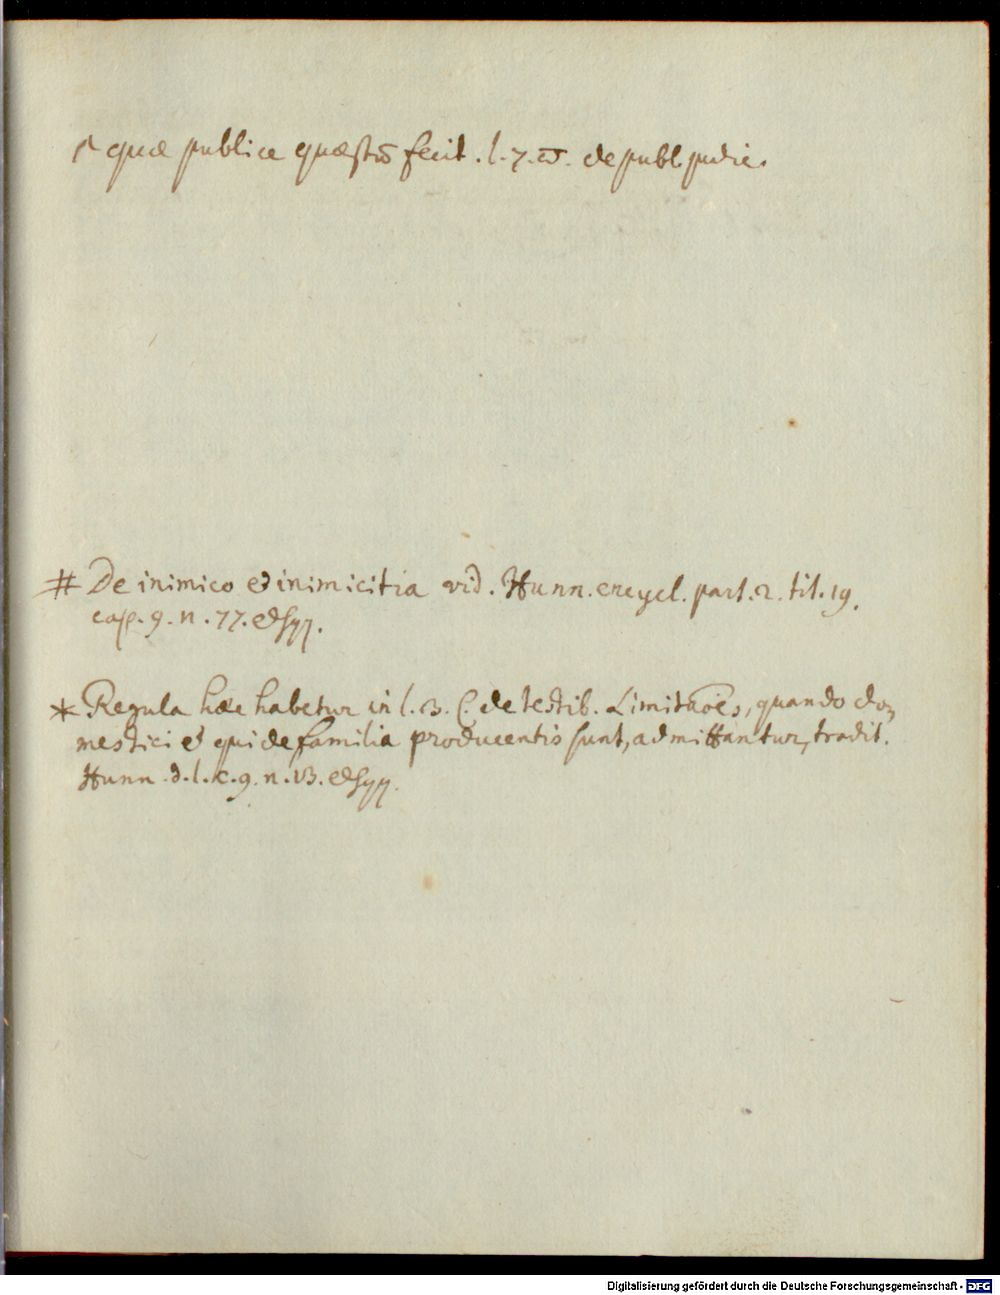 quæ publice quæstū fecit. l. 7. ω. de publ. judic.
# De inimico et inimicitia vid. Hunn. encycl. part. 2. tit. 19.
cap. 9. n. 77. et sqq.
* Regula hæc habetur in l. 3. C. de testib. Limitaōēs, quando do-
mestici et qui de familia producentis sunt, admittantur, tradit.
Hunn. d. l. c. 9. n. 13. et sqq.
Digitalisierung gefördert durch die Deutsche Forschungsgemeinschaft - DFG